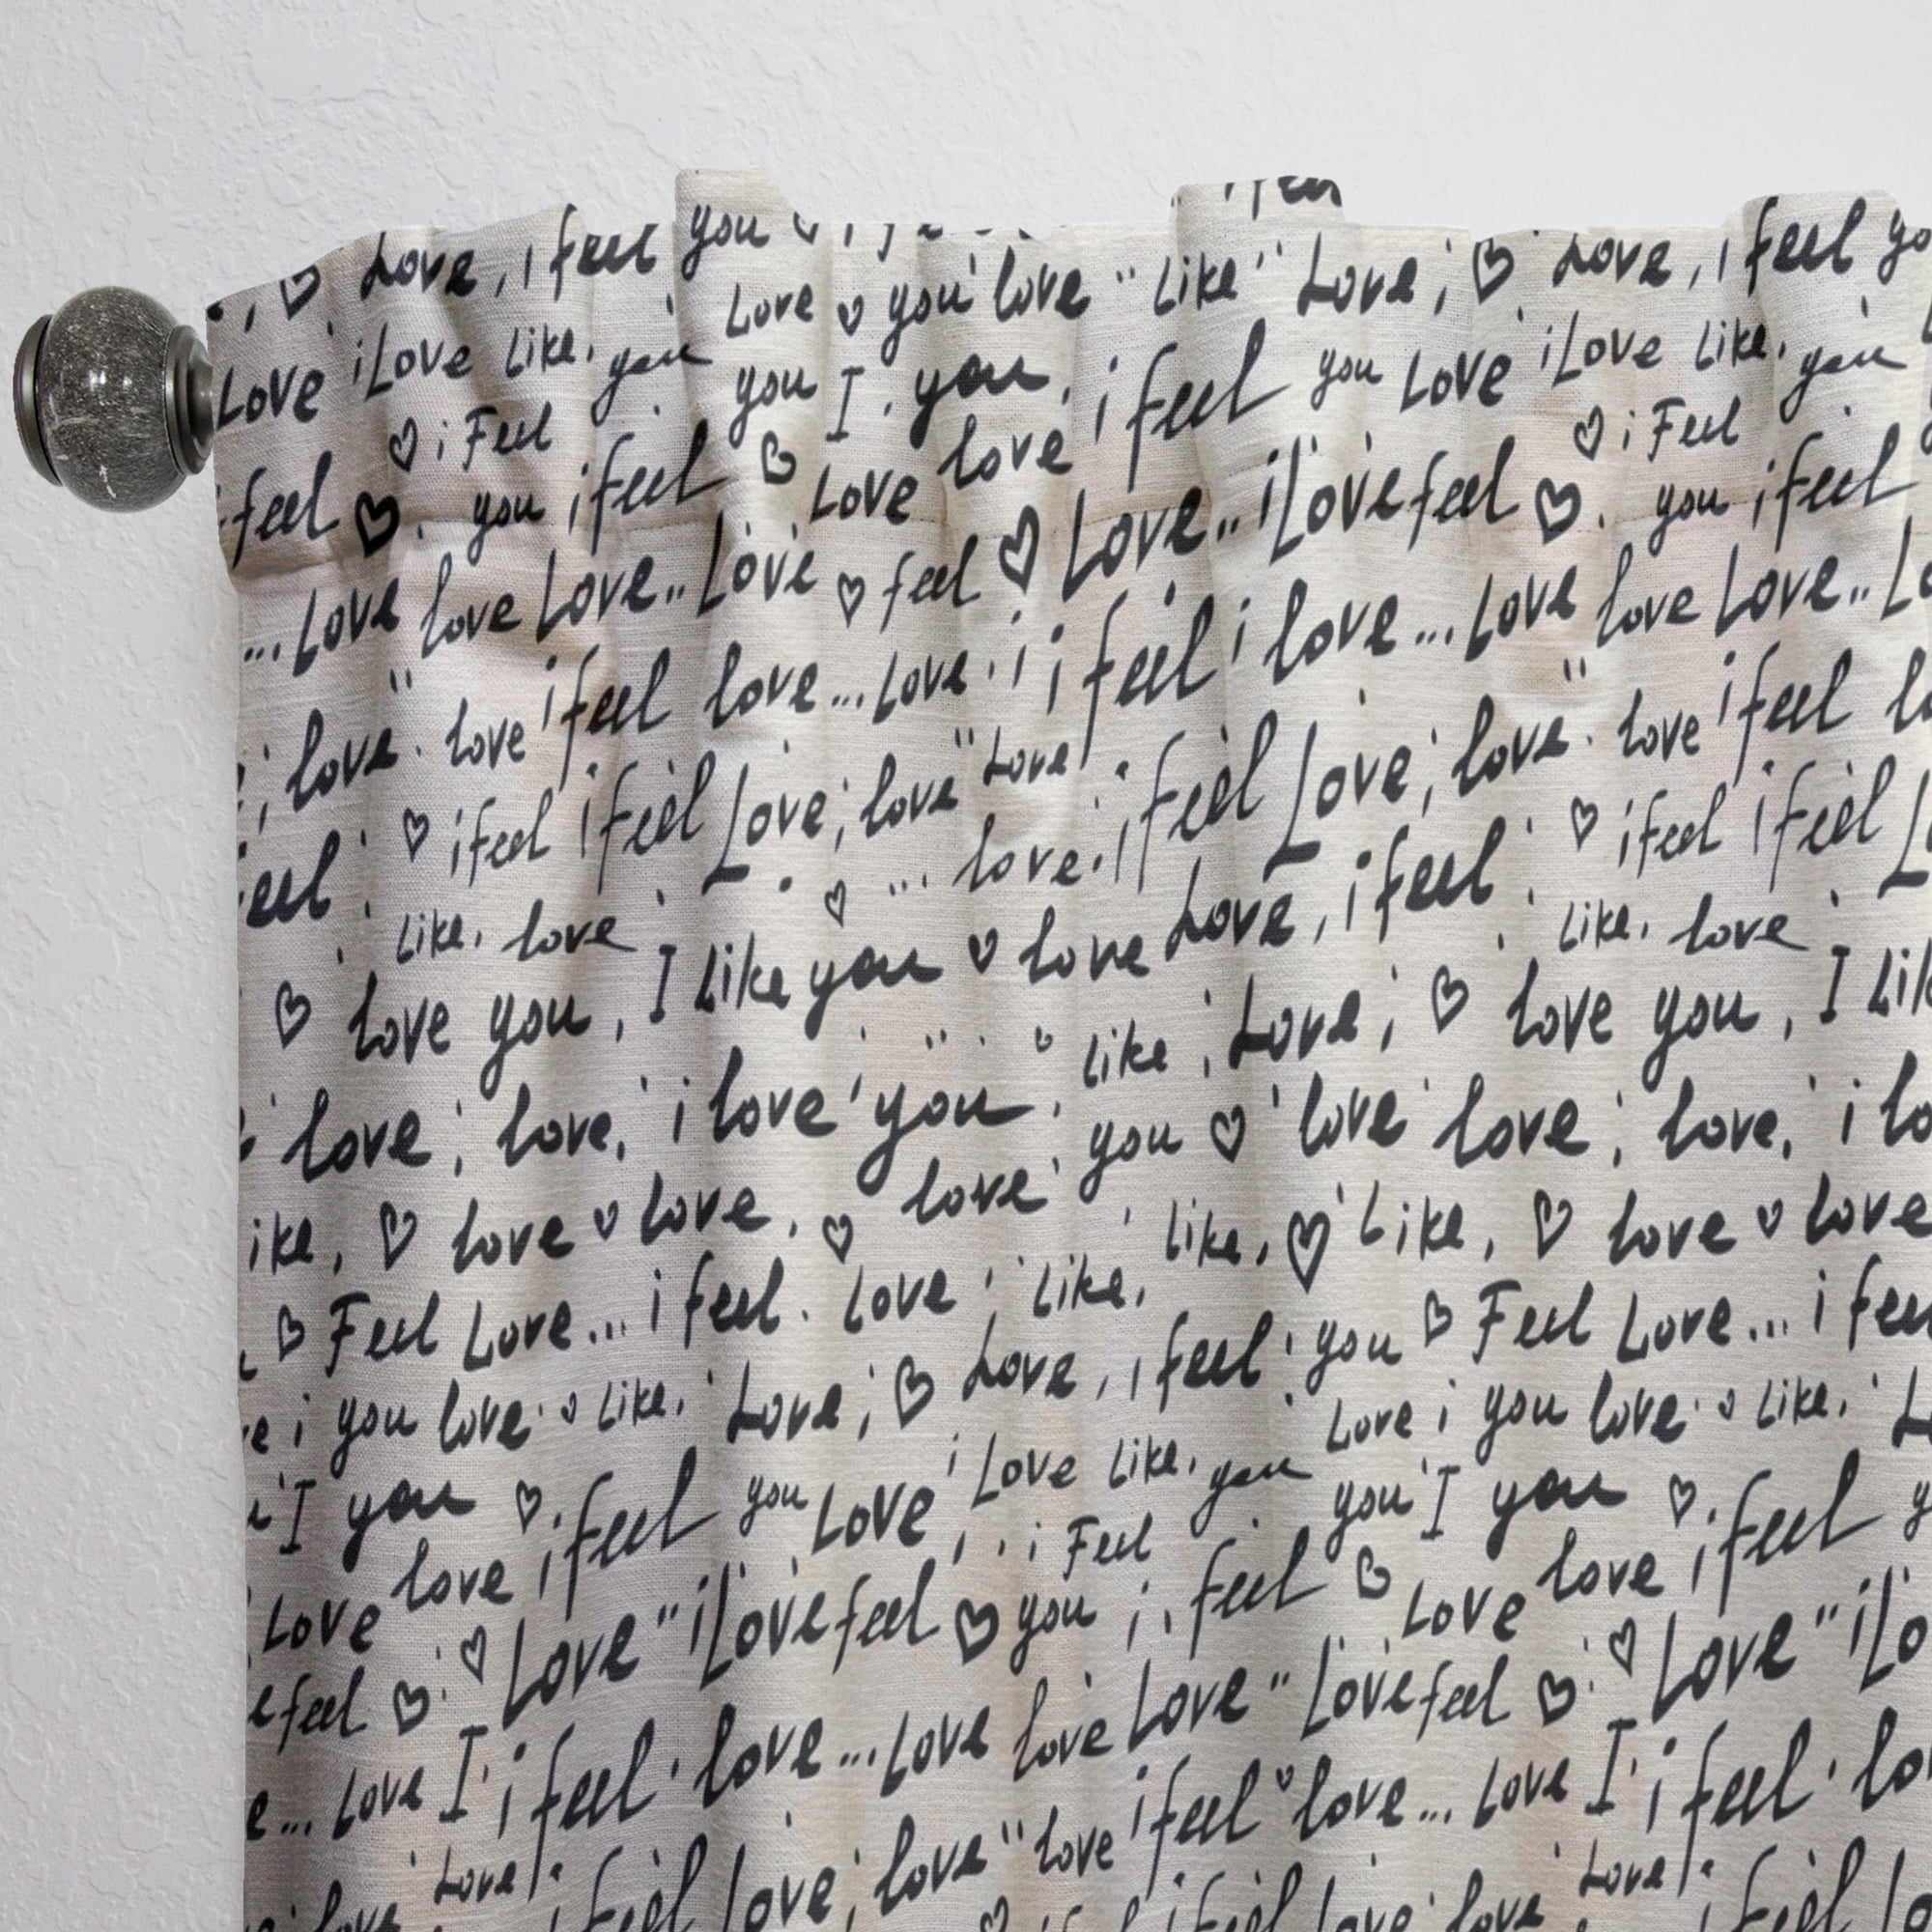 Love, i feel you
Love ♡ you love " like " Love; ♡ Love, i feel yo
Love i Love like, you
you I. you, i feel you Love i Love like, you
♡ i Feel
♡ i Feel
feel ♡. you i feel ♡ Love love
♡ Love.. i Love feel ♡. you i feel
... Love love Love.. Love ♡ feel
i feel i love ... Love love Love.. L
; love. love i feel love ... Love. i
Love; love. love i feel
eel ♡ i feel i feel Love; love " Love
love. i feel
♡ i feel i feel
like, love
♡ Love, i feel
like, love
♡ love you, I like you ♡ love
like, Love; ♡ love you, I lik
love; love, i love you
you ♡ love love; love, i lo
ike, ♡ love ♡ love, ♡ love
like, ♡ Like, ♡ love ♡ love
♡ Feel Love... i feel. Love; like,
you ♡ Feel Love... i fee
e i you love ♡ like, Love; ♡ Love, i feel
Love i you love ♡ like,
I you ♡. i feel you Love i Love like, you
you I you ♡. i feel
Love love i Feel
♡ Love love i feel
e feel ♡. ♡ Love " i Love feel ♡ you i. feel
Love " Love feel ♡ ♡ Love " i Lo
e... Love I i feel love ... Love love
i feel ♡ love ... Love I i feel lo
Love
Love; love " love
Love